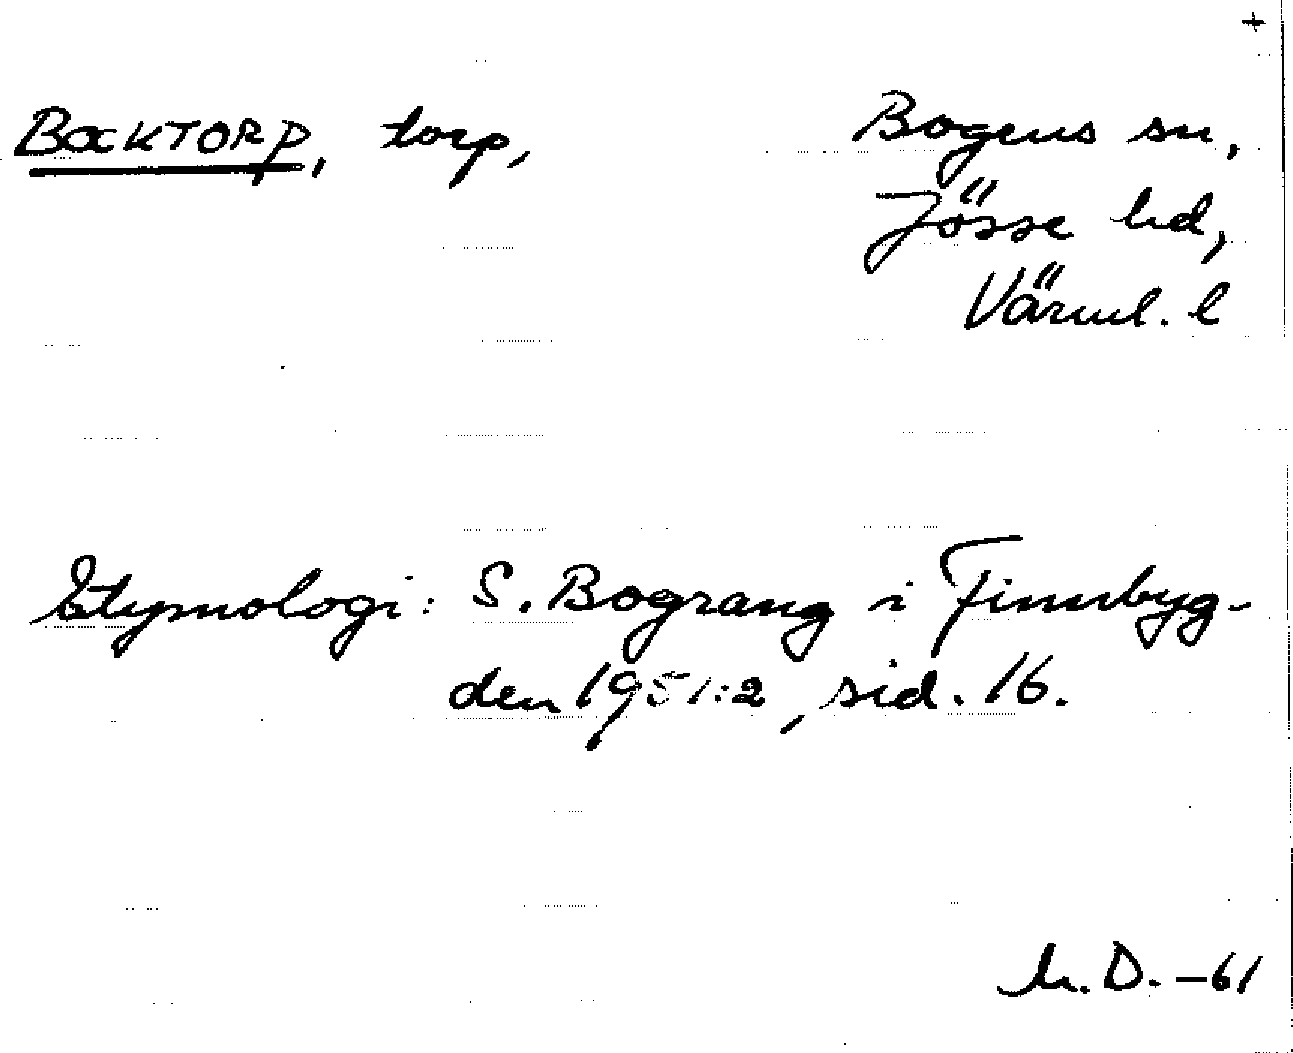 +
BOCKTORP, torp, Bogens sn,
Jösse hd,
Värml. l
Etymologi: S. Bograng i Finnbyg-
den 1951:2, sid. 16.
M. D. -61